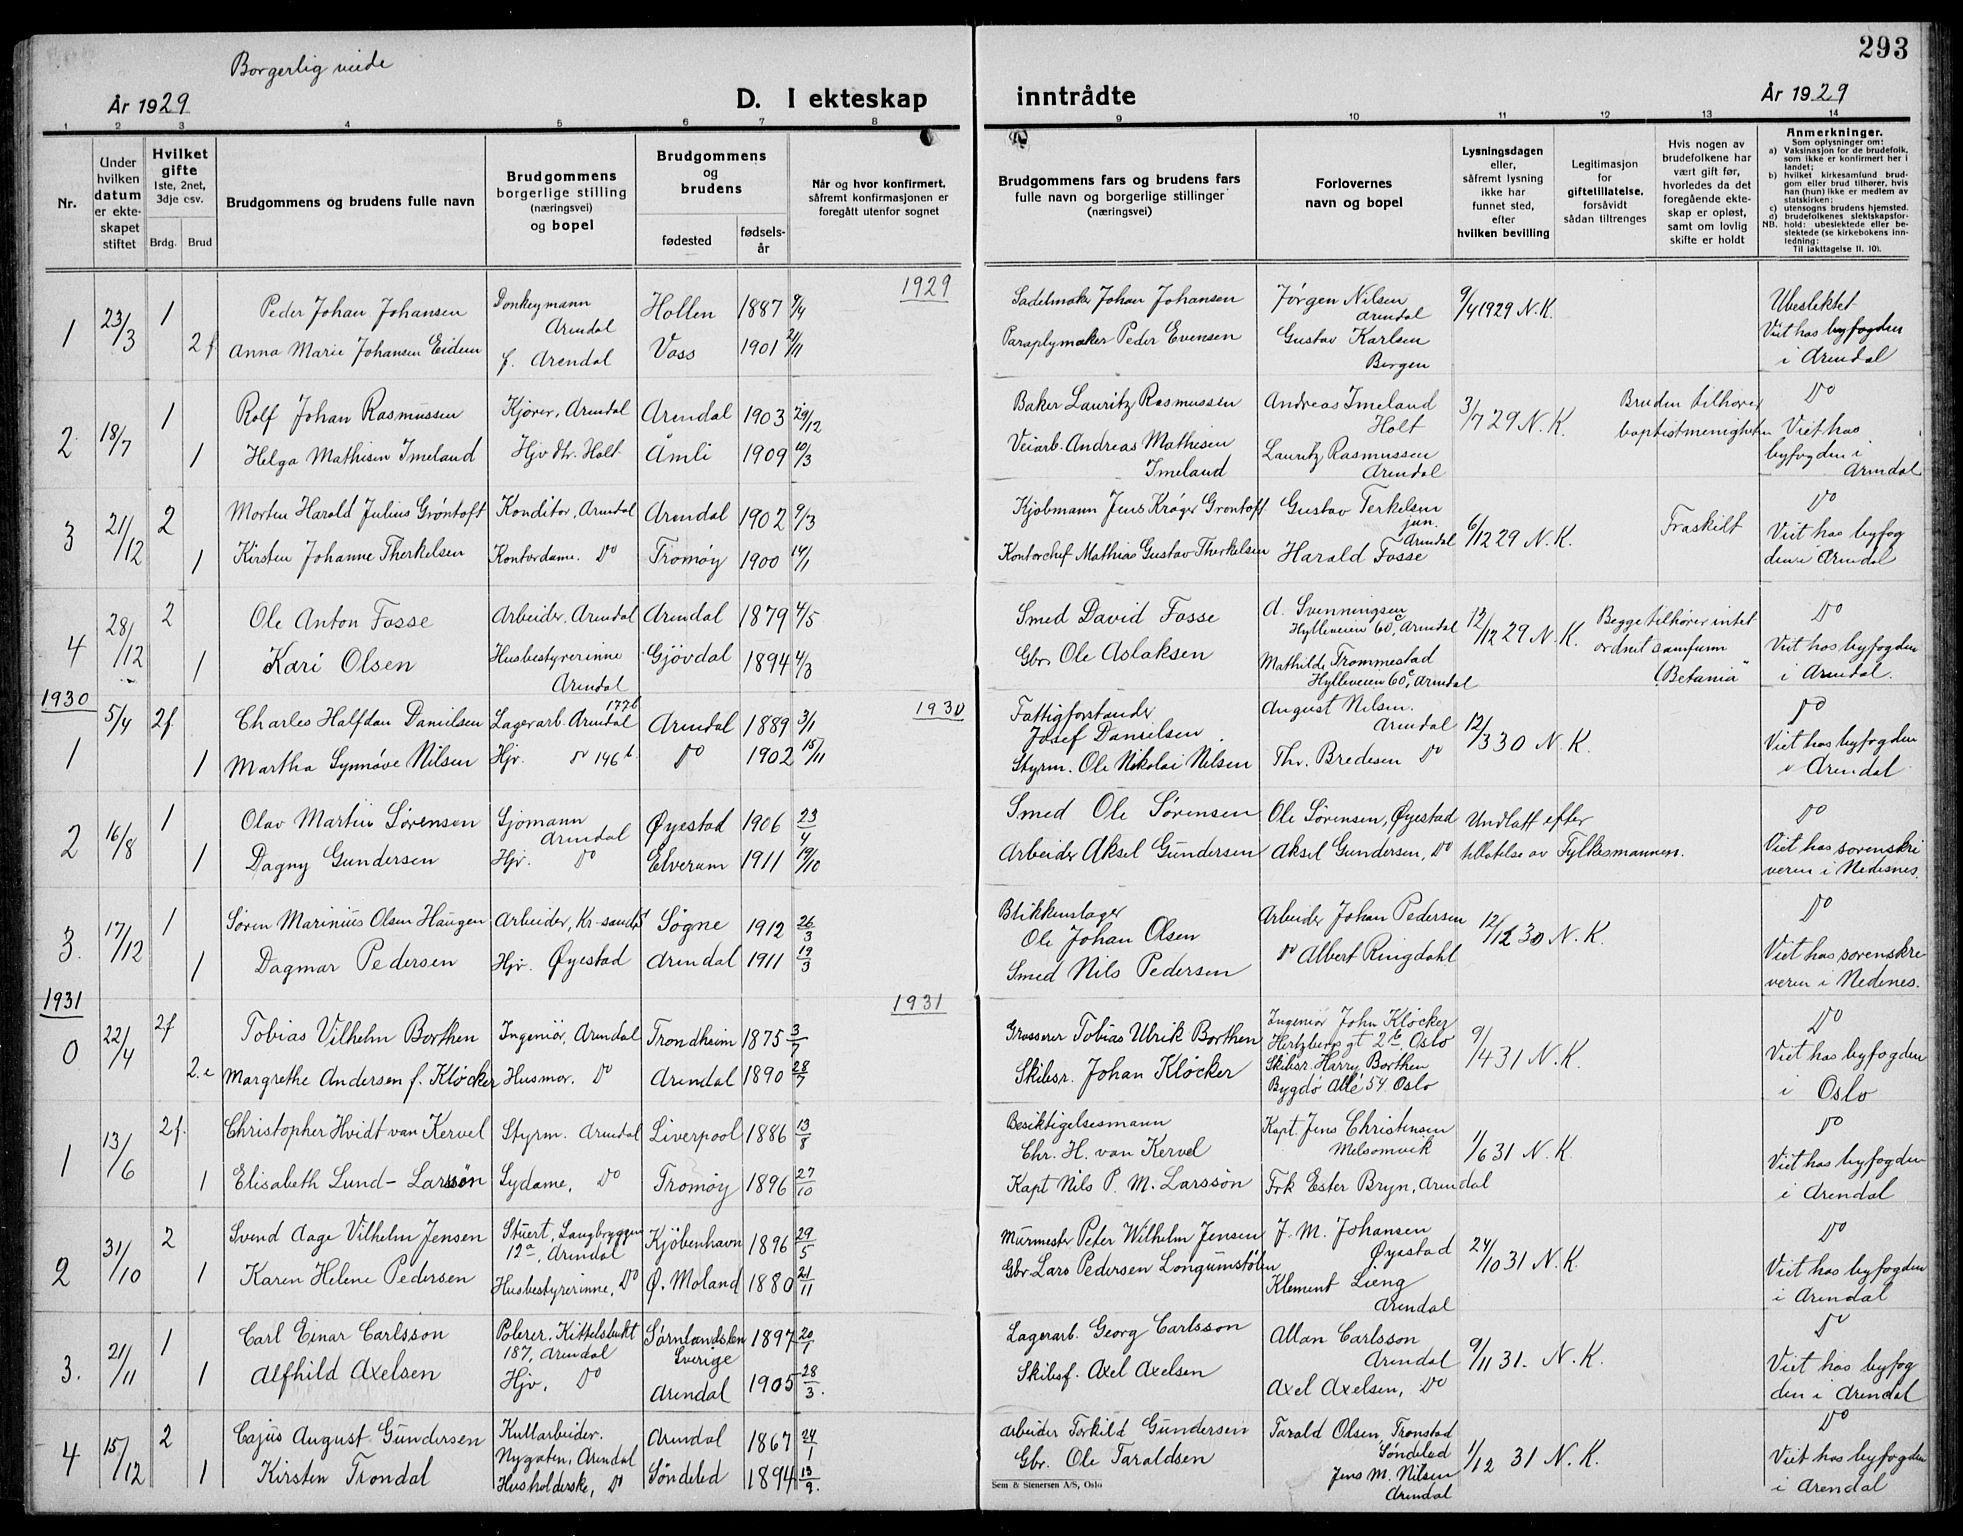 293
Borgerlig viede
År 1929
D. I ekteskap inntrådte
År 1929
1 2 3 4 5 6 7 8 9 10 11 12 13 14
Nr.
Under hvilken datum er ekteskapet stiftet
Hvilket gifte
1ste, 2net, 3dje osv.
Brdg. Brud
Brudgommens og brudens fulle navn
Brudgommens borgerlige stilling (næringsvei) og bopel
Brudgommens og brudens
fødested
fødselsår
Når og hvor konfirmert, såfremt konfirmasjonen er foregått utenfor sognet
Brudgommens fars og brudens fars fulle navn og borgerlige stillinger (næringsvei)
Forlovernes navn og bopel
Lysningsdagen eller, såfremt lysning ikke har funnet sted, efter hvilken bevilling
Legitimasjon for giftetillatelse, forsåvidt sådan tiltrenges
Hvis nogen av brudefolkene har vært gift før, hvorledes da det foregående ekteskap er opløst, samt om lovlig skifte er holdt
Anmerkninger.
Som oplysninger om:
a) Vaksinasjon for de brudefolk, som ikke er konfirmert her i landet;
b) hvilket kirkesamfund brudgom eller brud tilhører, hvis han (hun) ikke er medlem av statskirken;
c) utensogns brudens hjemsted.
d) brudefolkenes slektskapsforhold: ubeslektede eller beslektede (se kirkebokens innledning:
NB.
Til iakttagelse II. 10).
1929
1 23/3 1 Peder Johan Johansen Donkeymann Arendal Hollen 1887 9/4 Sadelmaker Johan Johansen Jørgen Nilsen Arendal 9/4 1929 N.K. Ubeslektet
2f Anna Marie Johansen Eidem f. Arendal Voss 1901 21/11 Paraplymaker Peder Evensen Gustav Karlsen Bergen Viet hos byfogden i Arendal
2 18/7 1 Rolf Johan Rasmussen Kjører, Arendal Arendal 1903 29/12 Baker Lauritz Rasmussen Andreas Imeland Holt 3/7 29 N.K. Bruden tilhører baptistmenigheten Do
1 Helga Mathisen Imeland Hjv. dtr. Holt Åmli 1909 10/3 Veiarb. Andreas Mathisen Imeland Lauritz Rasmussen Arendal Viet hos byfogden i Arendal
3 21/12 2 Morten Harald Julius Grøntoft Konditor, Arendal Arendal 1902 9/3 Kjøbmann Jens Krøger Grøntoft Gustav Terkelsen jun. Arendal 6/12 29 N.K. Fraskilt Do
1 Kirsten Johanne Therkelsen Kontordame. Do Tromøy 1900 14/1 Kontorchef Mathias Gustav Therkelsen Harald Fosse Viet hos byfogden i Arendal
4 28/12 2 Ole Anton Fosse Arbeider, Arendal Arendal 1879 4/5 Smed David Fosse A. Svenningsen Hylleveien 60c, Arendal 12/12 29 N.K. Begge tilhører intet ordnet samfunn (Betania" Do
1 Kari Olsen Husbestyrerinne Arendal Gjövdal 1894 4/3 Gbr. Ole Aslaksen Mathilde Trommestad Hylleveien 60c, Arendal Viet hos byfogden i Arendal.
1930
1930
1 5/4 2f Charles Halfdan Danielsen Lagerarb. Arendal 177b Arendal 1889 3/1 Fattigforstander Josef Danielsen August Nilsen. Arendal 12/3 30 N.K. Do
1 Martha Synnøve Nilsen Hjv. Do 146b Do 1902 15/11 Styrm. Ole Nikolai Nilsen Thv. Bredesen Do Viet hos byfogden i Arendal
2 16/8 1 Olav Martin Sørensen Sjömann Arendal Øyestad 1906 23/4 Smed Ole Sørensen Ole Sørensen, Øyestad Undlatt efter tillatelse av Fylkesmannen. Do
1 Dagny Gundersen Hjv. Do Elverum 1911 19/10 Arbeider Aksel Gundersen Aksel Gundersen, Do Viet hos sorenskriveren i Nedenes.
3. 17/12 1 Søren Marinius Olsen Haugen Arbeider, Kr-sand S Søgne 1912 26/3 Blikkenslager Ole Johan Olsen Arbeider Johan Pedersen 12/12 30 N.K. Do
1 Dagmar Pedersen Hjv. Øyestad Arendal 1911 19/3 Smed Nils Pedersen Do Albert Ringdahl Viet hos sorenskriveren i Nedenes.
1931
1931
0 22/4 2f Tobias Vilhelm Borthen Ingeniör, Arendal Trondheim 1875 3/7 Grosserer Tobias Ulrik Borthen Ingeniør John Kløcker Hertzbergs gt 2c Oslo 9/4 31 N.K. Do
2.e Margrethe Andersen f. Kløcker Husmor. Do Arendal 1890 28/7 Skibsr. Johan Kløcker Skibsr. Harry Borthen Bygdø Alle 54 Oslo Viet hos byfogden i Oslo
1 13/6 2f. Christopher Hvidt van Kervel Styrm. Arendal Liverpool 1886 13/8 Besiktigelsesmann Chr. H. van Kervel Kapt. Jens Christensen Melsomvik 1/6 31 N.K. Do
1 Elisabeth Lund-Larssön Sydame, Do Tromøy 1896 27/10 Kapt Nils P. M. Larssön Frk Ester Bryn, Arendal Viet hos byfogden i Arendal
2 31/10 2 Svend Aage Vilhelm Jensen Stuert, Langbryggen 12a, Arendal Kjöbenhavn 1896 29/5 Murmester Peter Wilhelm Jensen J. M. Johansen Øyestad 24/10 31 N.K. Do
1 Karen Helene Pedersen Husbestyrerinne, Do Ø. Moland 1880 21/11 Gbr. Lars Pedersen Longumstølen Klement Lieng Arendal Viet hos byfogden i Arendal
3. 21/11 1 Carl Einar Carlsson Polerer, Kittelsbukt 187, Arendal Sverige 1897 20/1 Lagerarb. Georg Carlsson Allan Carlsson Arendal 9/11 31. N.K. Do
1 Alfhild Axelsen Hjv. Do Arendal 1905 28/3. Skibsf. Axel Axelsen Axel Axelsen, Do Viet hos byfogden i Arendal
4 15/12 2 Cajus August Gundersen Kullarbeider. Nygaten, Arendal Arendal 1867 24/1 Arbeider Torkild Gundersen Tarald Olsen, Tronstad Søndeled 1/12 31 N.K. Do
1 Kirsten Trondal Husholderske, Do Söndeled 1894 13/9. Gbr. Ole Taraldsen Jens M. Nilsen Arendal Viet hos byfogden i Arendal
Sem & Stenersen A/S, Oslo